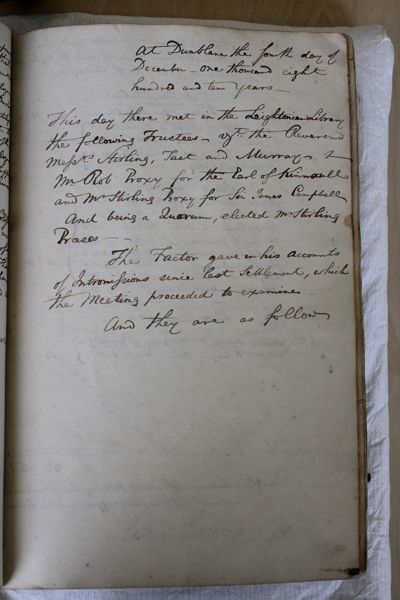 At Dunblane the fourth day of
December one thousand eight
hundred and ten years—
This day there met in the Leightonian Library
the following Trustees— vizt. the Reverend
Messrs. Stirling, Tait and Murray, &
Mr Rob Proxy for the Earl of Kinnoull
and Mr Stirling Proxy for Sir James Campbell
And being a Quorum, elected Mr Stirling
Preses—
The Factor gave in his accounts
of Intromissions since last Settlement, which
the Meeting proceeded to examine—
And they are as follow